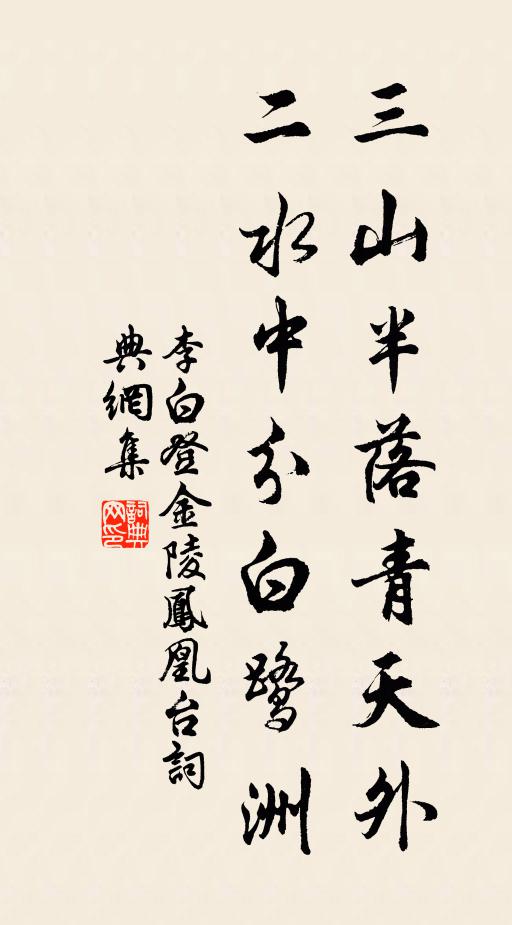 三山半落青天外
二水中分白鷺洲
李白登金陵鳳凰台詞
典網集
詞典网印